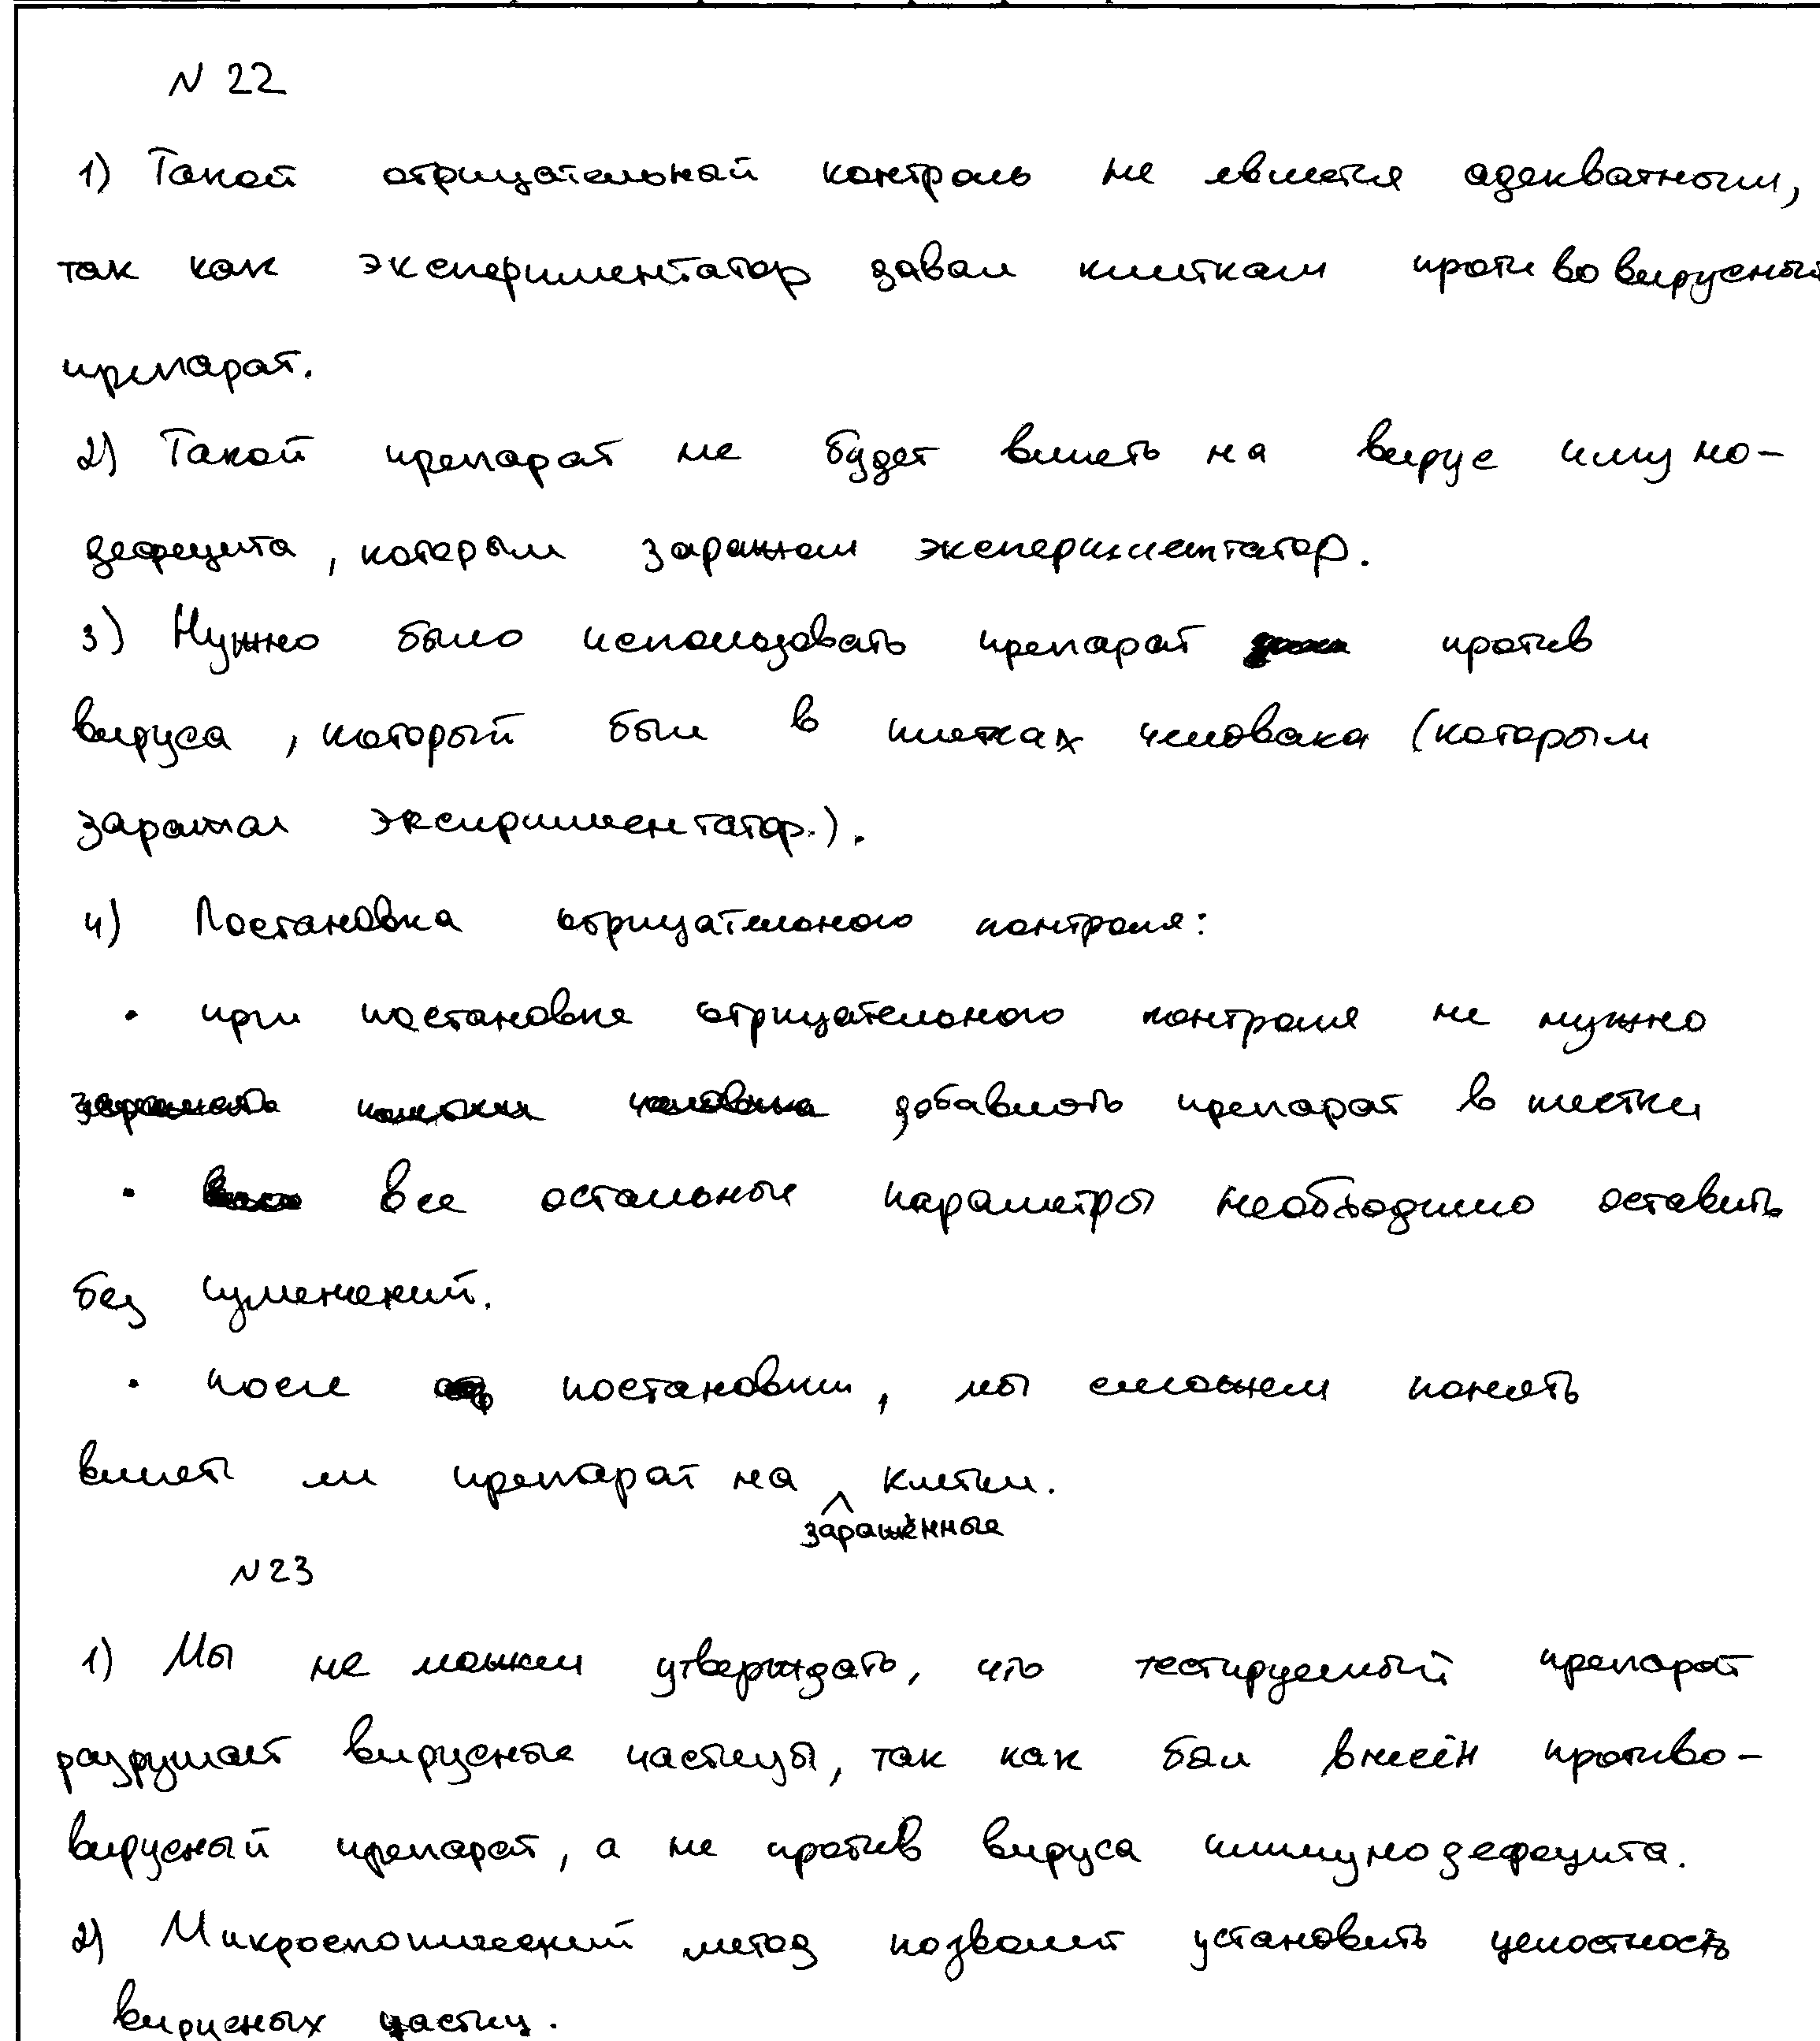 N 22
1) Такой отрицательный контроль не является адекватным,
так как экспериментатор давал клеткам противовирусный
препарат.
2) Такой препарат не будет влиять на вирус имуно-
дефецита, которым заражал экспериментатор.
3) Нужно было использовать препарат против
вируса, который был в клетках человека (которым
заражал экспериментатор.).
4) Постановка отрицательного контроля:
• при постановке отрицательного контроля не нужно
добавлять препарат в клетки
• все остальные параметры необходимо оставить
без изменений.
• после постановки, мы сможем понять
влияет ли препарат на заражённые клетки.
N 23
1) Мы не можем утверждать, что тестируемый препарат
разрушает вирусные частицы, так как был внесён противо-
вирусный препарат, а не против вируса иммунодефецита.
2) Микроскопический метод позволит установить целостность
вирусных частиц.